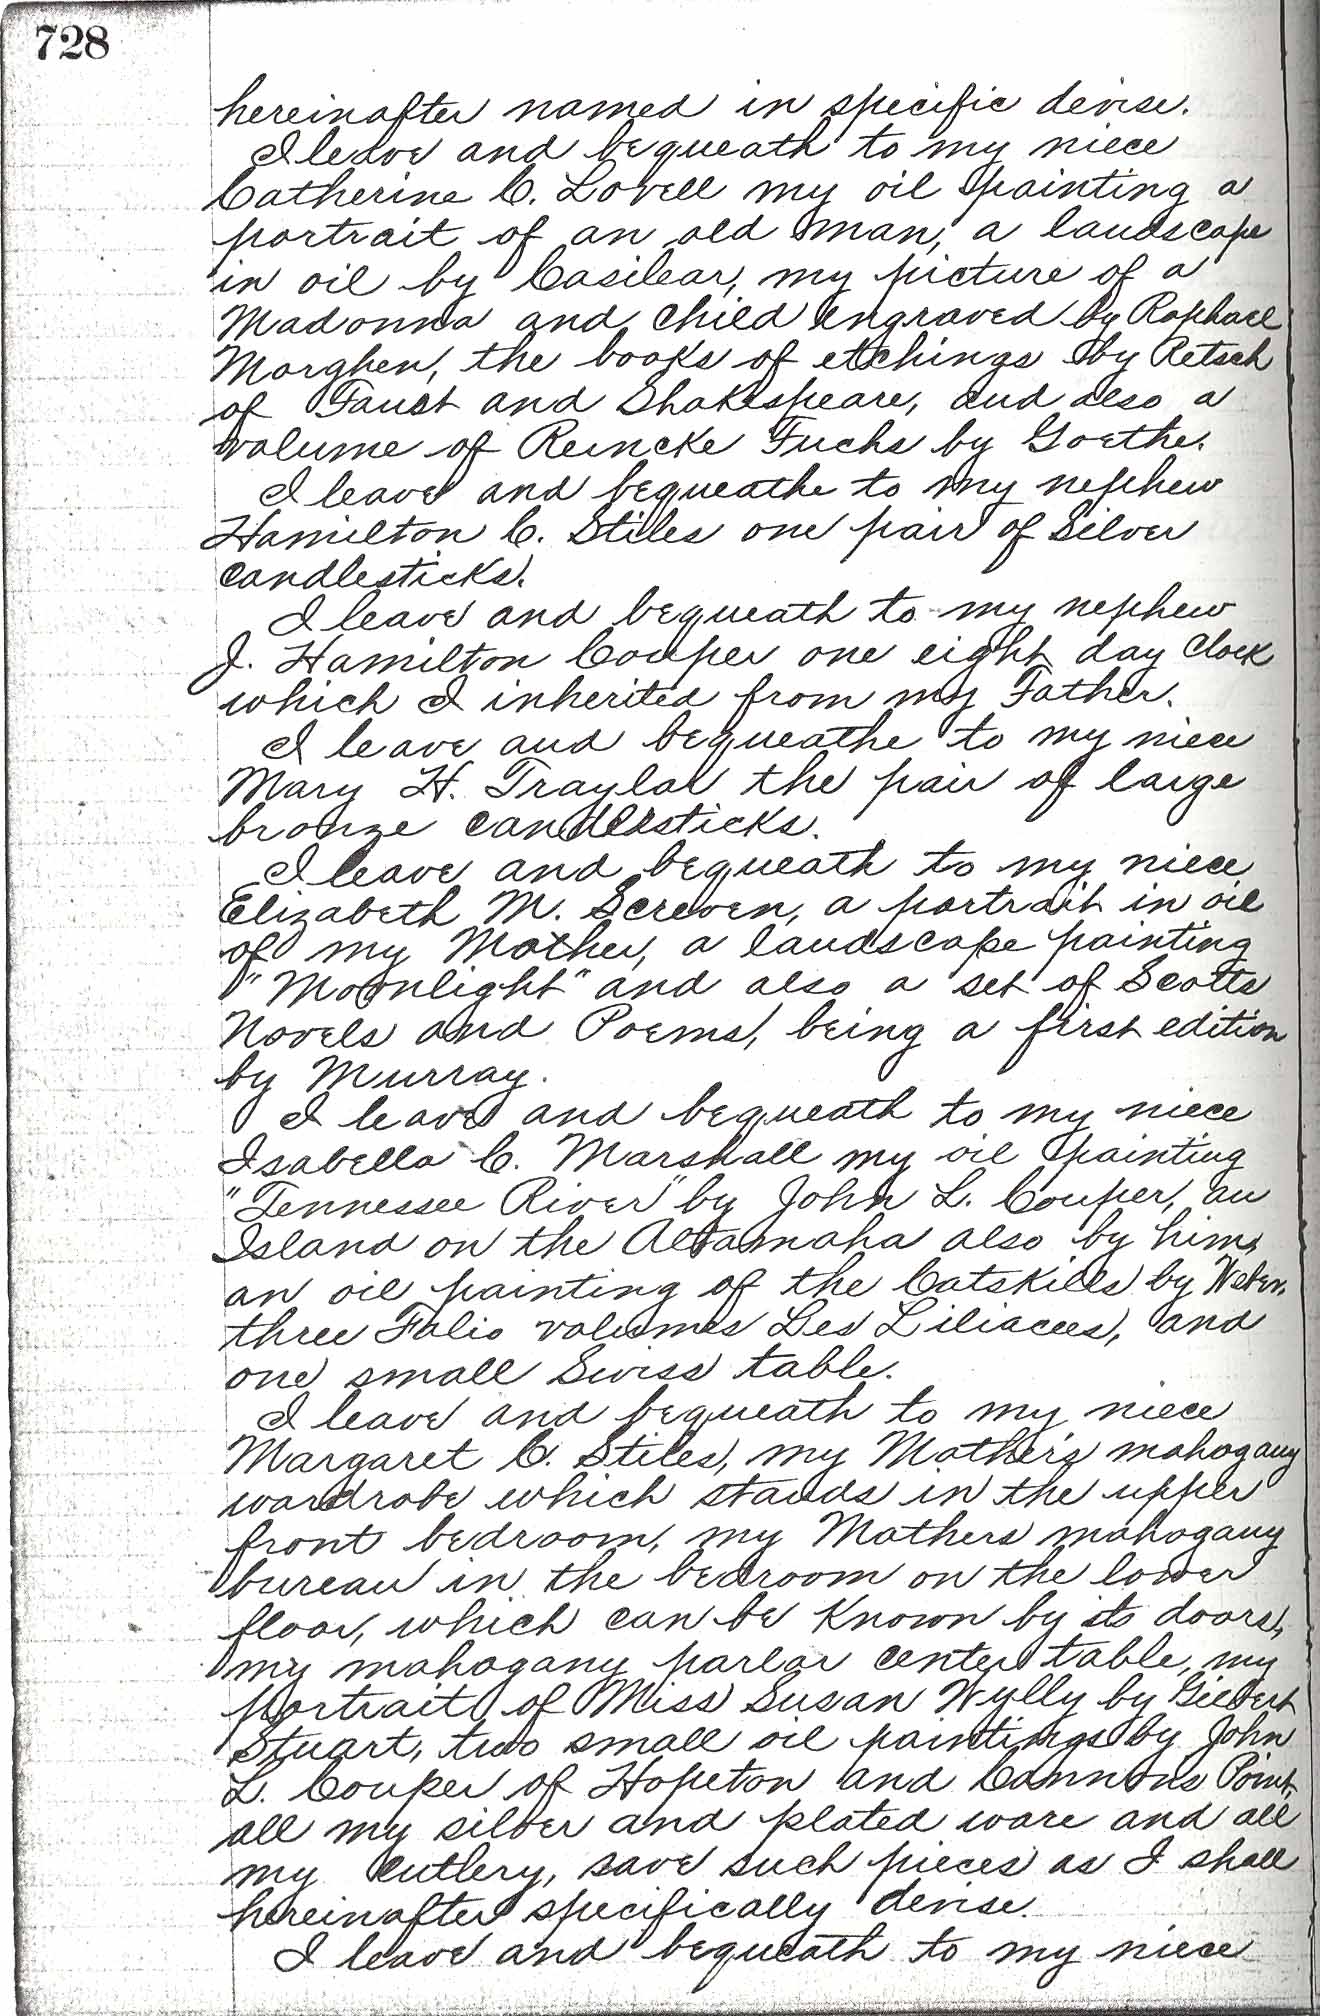 728
hereinafter named in specific devise.
I leave and bequeath to my niece
Catherine C. Lovell my oil painting a
portrait of an old man, a landscape
in oil by Casilear, my picture of a
Madonna and Child engraved by Raphael
Morghen, the books of etchings by Retsch
of Faust and Shakespeare, and also a
volume of Reincke Fuchs by Goethe.
I leave and bequeathe to my nephew
Hamilton C. Stiles one pair of Silver
Candlesticks.
I leave and bequeath to my nephew
J. Hamilton Couper one eight day Clock
which I inherited from my Father.
I leave and bequeathe to my niece
Mary H. Traylor the pair of large
bronze candlesticks.
I leave and bequeath to my niece
Elizabeth M. Screven, a portrait in oil
of my Mother, a landscape painting
"Moonlight" and also a set of Scotts
Novels and Poems, being a first edition
by Murray.
I leave and bequeath to my niece
Isabella C. Marshall my oil painting
"Tennessee River" by John L. Couper, an
Island on the Altamaha also by him,
an oil painting of the Catskills by Weber,
three Folio volumes Les Liliacees, and
one small Swiss table.
I leave and bequeath to my niece
Margaret C. Stiles, my Mother's mahogany
wardrobe which stands in the upper
front bedroom, my Mothers mahogany
bureau in the bedroom on the lower
floor, which can be Known by its doors,
my mahogany parlor center table, my
portrait of Miss Susan Wylly by Gilbert
Stuart, two small oil paintings by John
L. Couper of Hopeton and Cannons Point,
all my silver and plated ware and all
my cutlery, save such pieces as I shall
hereinafter specifically devise.
I leave and bequeath to my niece